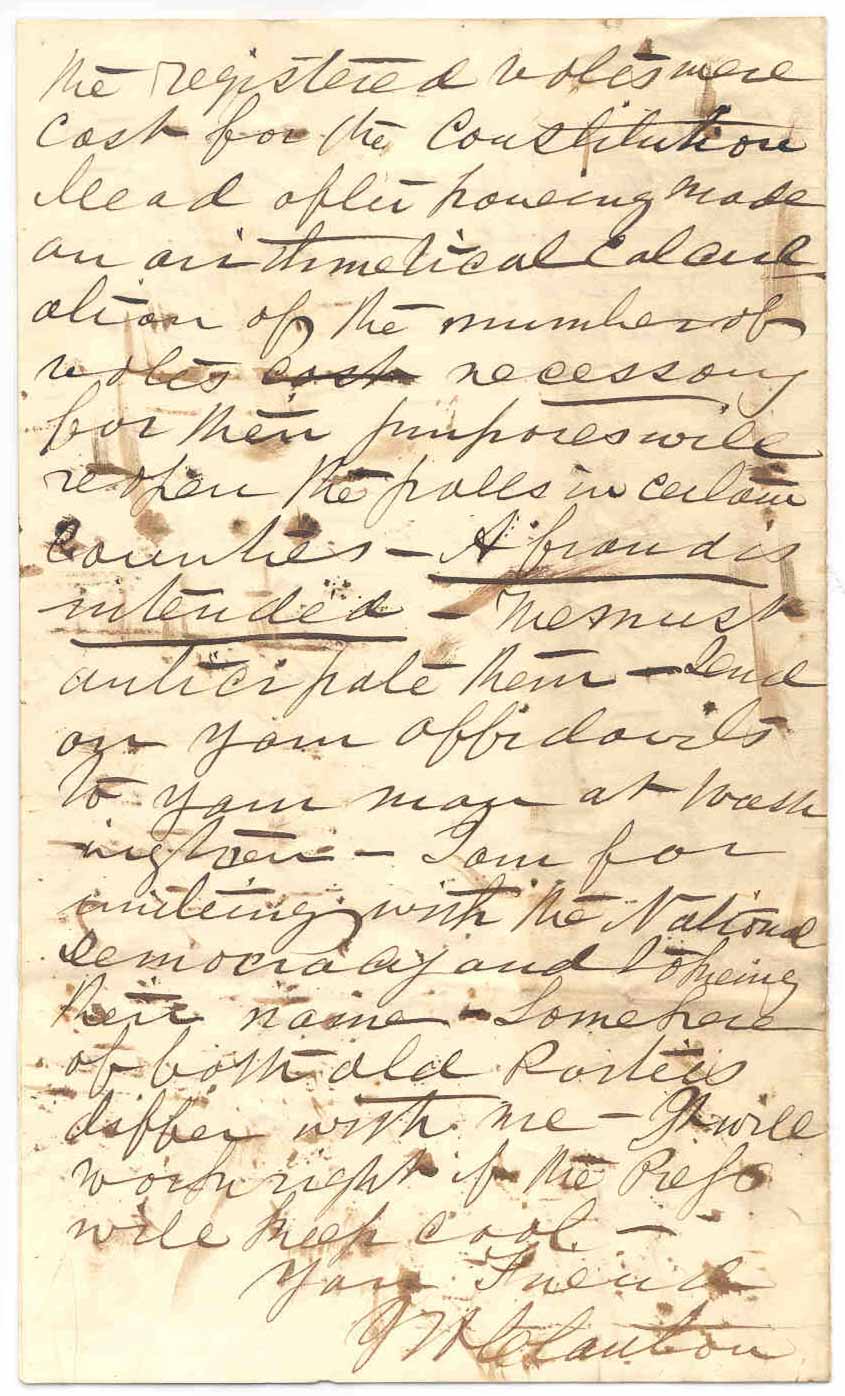 the registered votes were
cast for the Constitution
Mead after having made
an arithmetical calcul
ation of the number of
votes cast necessary
for their purposes will
reopen the polls in certain
Counties — A fraud is
intended — We must
anticipate them — Send
on your affidavits
to your man at Wash
ington — I am for
uniteing with the National
Democracy and takeing
their name — Some here
of both old Parties
differ with me — It will
work right if the
will keep cool. —
Your Friend
J H Clanton